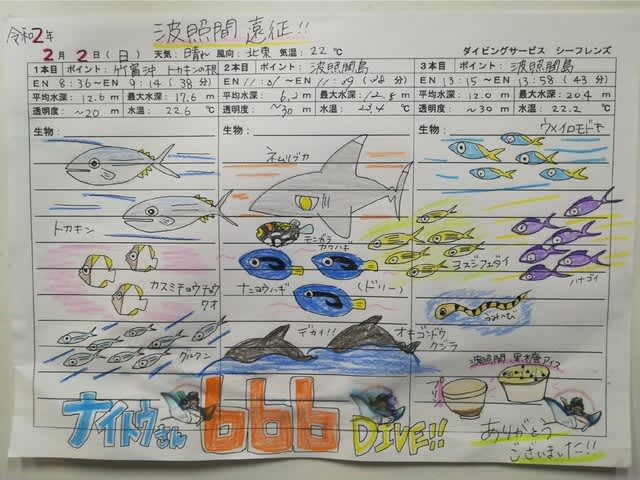 令和2年
波照間遠征!!
2月 2日(日) 天気:晴れ 風向:北東 気温:22℃ ダイビングサービス シーフレンズ
1本目 ポイント:竹富沖 トカキンの根 2本目 ポイント:波照間島 3本目 ポイント:波照間島
EN 8:36〜EN 9:14(38分) EN 13:15〜EN 13:58(43分)
平均水深:12.6m 最大水深:17.6m 平均水深:6.2m 最大水深:12.8m 平均水深:12.0m 最大水深:20.4m
透明度:〜20m 水温:22.6℃ 透明度:〜30m 水温:23.4℃ 透明度:〜30m 水温:22.2℃
生物: 生物: 生物:
ネムリブカ ウメイロモドキ
トカキン
モンガラ
カワハギ
ヨスジフエダイ
ハナゴイ
カスミチョウチョウ
ウオ
ナンヨウハギ (ドリー)
うみへび
グルクン
デカイ!! オキゴンドウ
クジラ
波照間 黒糖アイス
プリン
ナイトウさん 666 DIVE!!
ありがとう
ございました!!